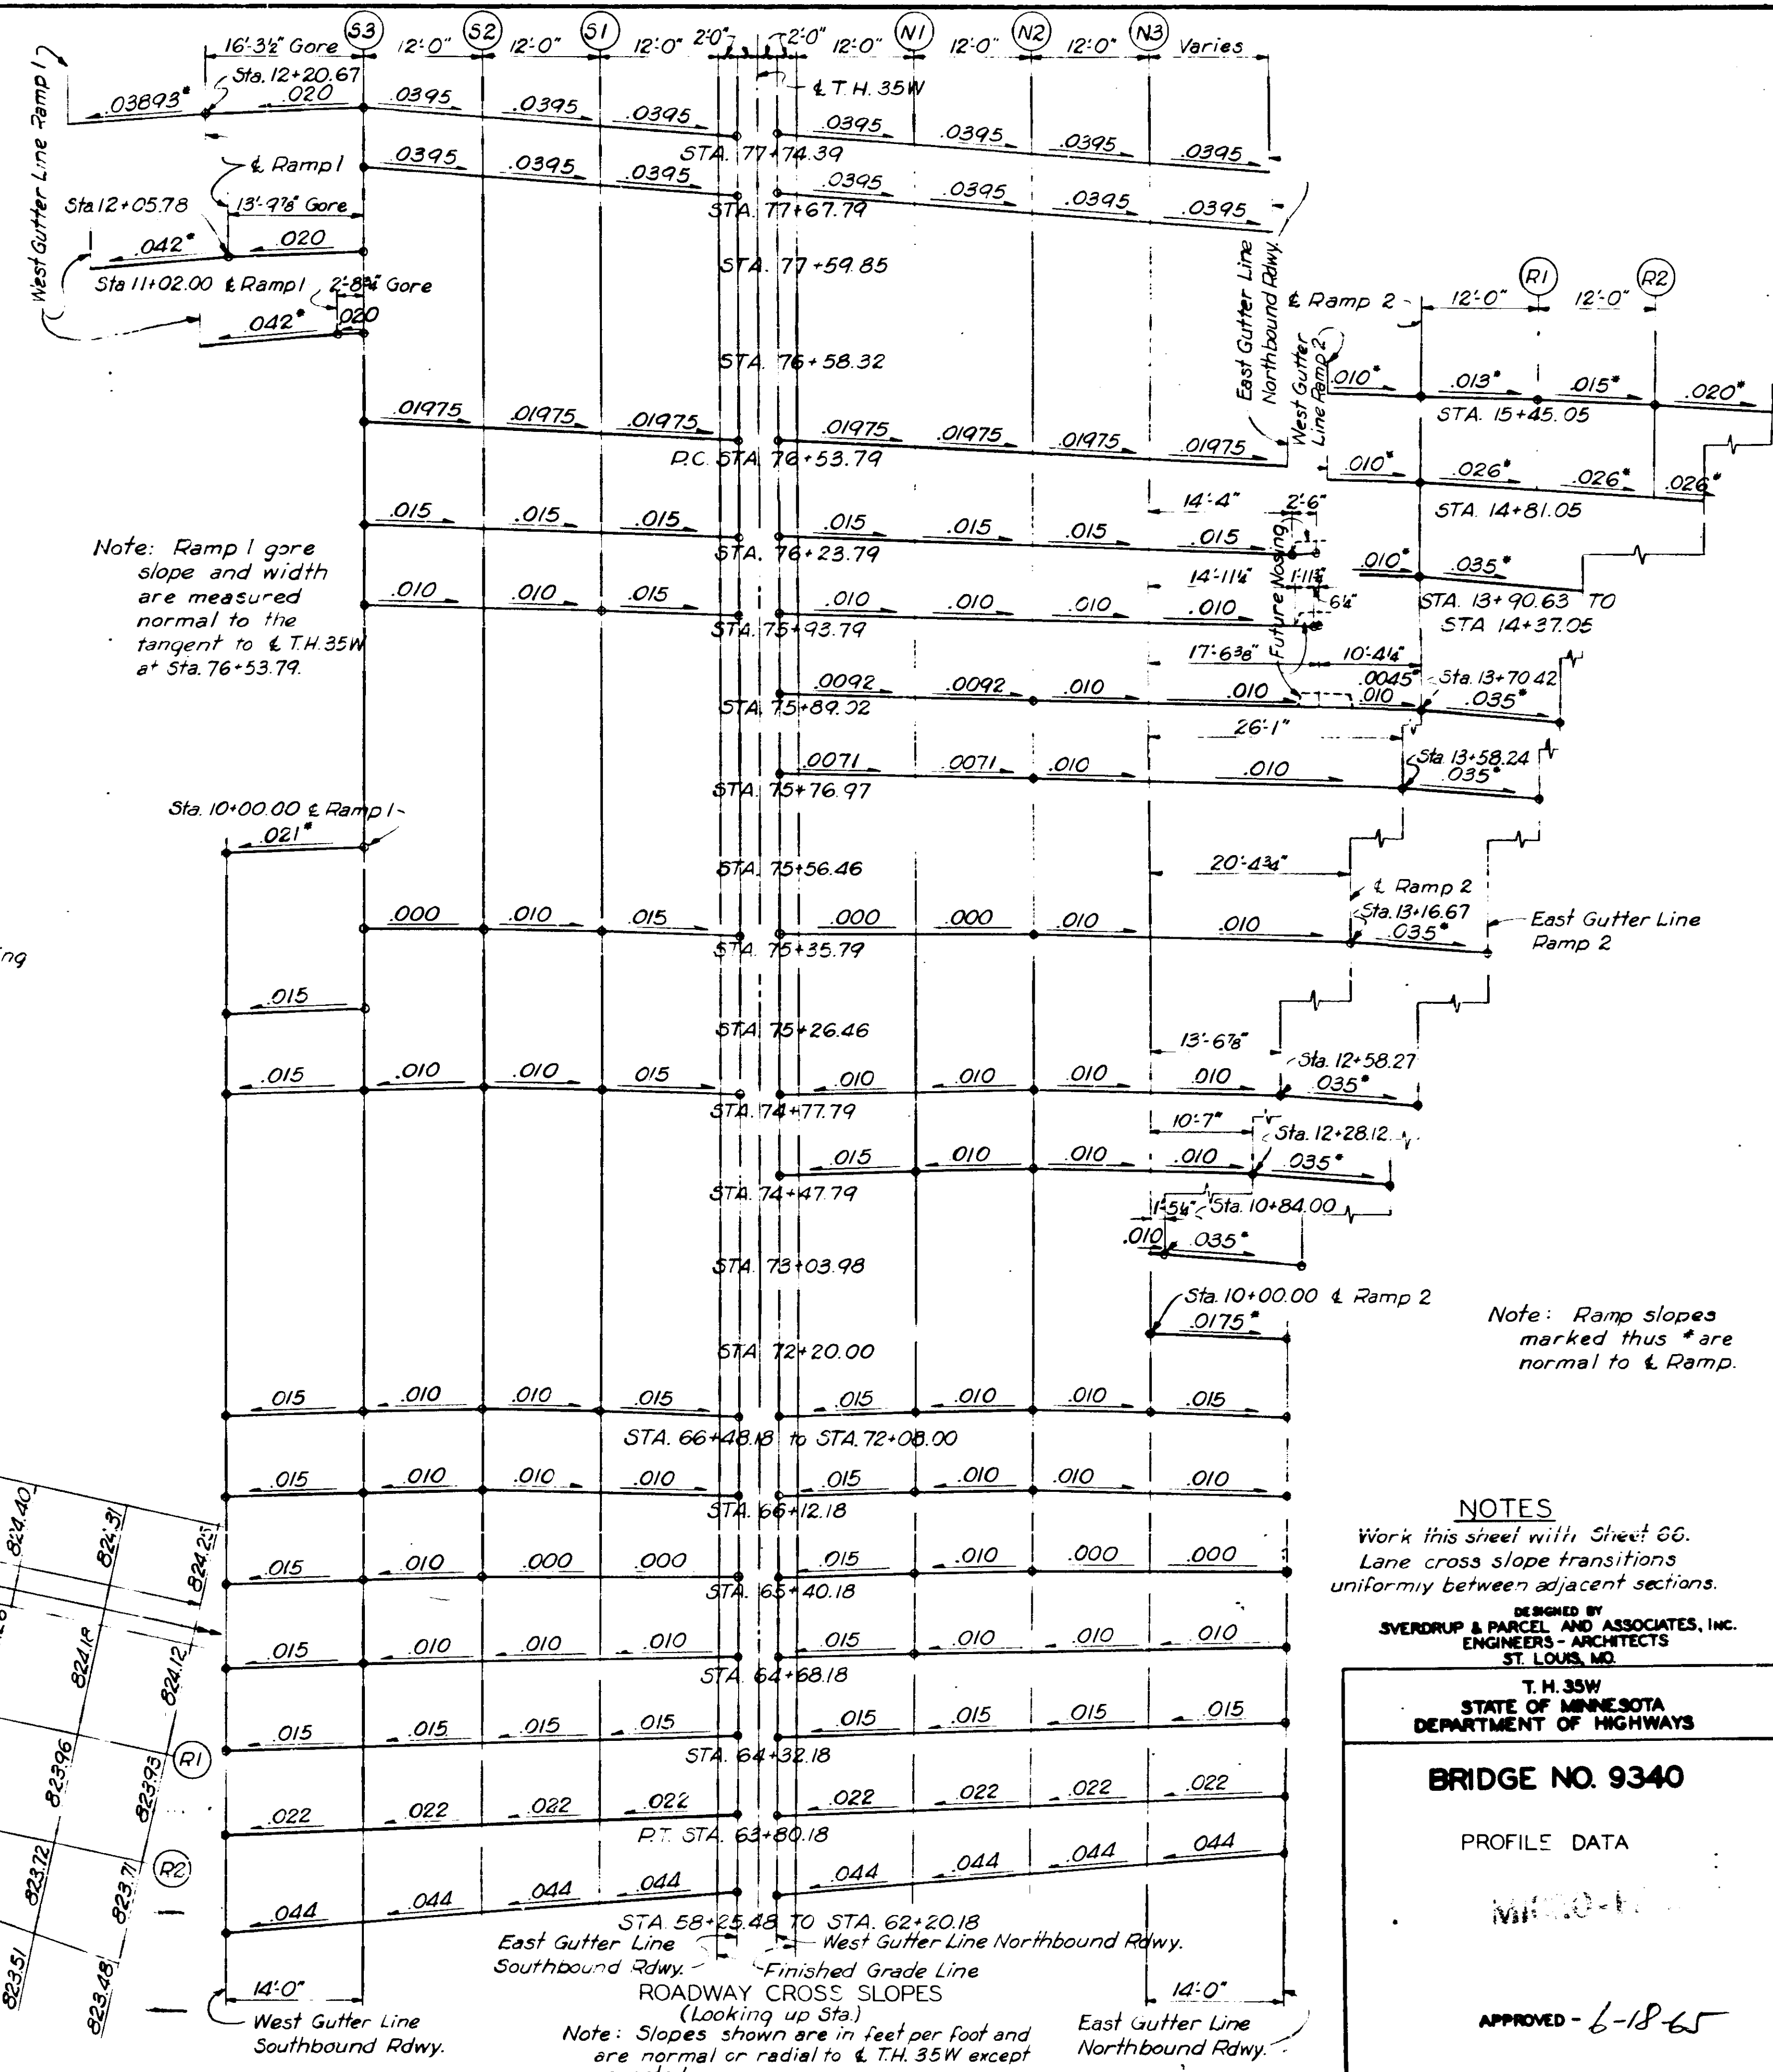 S3 S2 S1 N1 N2 N3
16'-3½" Gore 12'-0" 12'-0" 12'-0" 2'-0" 2'-0" 12'-0" 12'-0" 12'-0" Varies
West Gutter Line Ramp 1
Sta. 12+20.67
℄ T.H. 35W
.03893* .020 .0395 .0395 .0395 .0395 .0395 .0395 .0395
STA. 77+74.39
℄ Ramp 1
.0395 .0395 .0395 .0395 .0395 .0395 .0395
STA. 77+67.79
Sta 12+05.78 13'-9⅞" Gore
.042* .020
STA. 77+59.85
Sta 11+02.00 ℄ Ramp 1 2'-8¾" Gore
.042* .020
STA. 76+58.32
East Gutter Line Northbound Rdwy.
West Gutter Line Ramp 2
℄ Ramp 2 12'-0" R1 12'-0" R2
.010* .013* .015* .020*
STA. 15+45.05
.01975 .01975 .01975 .01975 .01975 .01975 .01975
P.C. STA. 76+53.79
.010* .026* .026* .026*
STA. 14+81.05
14'-4" 2'-6"
.015 .015 .015 .015 .015 .015 .015
STA. 76+23.79
Future Nosing
Note: Ramp 1 gore
slope and width
are measured
normal to the
tangent to ℄ T.H. 35W
at Sta. 76+53.79.
14'-11¼" 1'-11¾"
6¼"
.010 .010 .015 .010 .010 .010 .010
STA. 75+93.79
.010* .035*
STA. 13+90.63 TO
STA 14+37.05
17'-6⅜" 10'-4¼"
.0092 .0092 .010 .010 .0045* .010 Sta. 13+70.42 .035*
STA. 75+89.02
26'-1"
.0071 .0071 .010 .010 Sta. 13+58.24 .035*
STA. 75+76.97
Sta. 10+00.00 ℄ Ramp 1
.021*
STA. 75+56.46
20'-4¾"
℄ Ramp 2
Sta. 13+16.67
.000 .010 .015 .000 .000 .010 .010 .035*
STA. 75+35.79
East Gutter Line
Ramp 2
.015
STA. 75+26.46
13'-6⅞"
Sta. 12+58.27
.015 .010 .010 .015 .010 .010 .010 .010 .035*
STA. 74+77.79
10'-7"
Sta. 12+28.12
.015 .010 .010 .010 .035*
STA. 74+47.79
1'-5¼" Sta. 10+84.00
.010 .035*
STA. 73+03.98
Sta. 10+00.00 ℄ Ramp 2
.0175*
STA 72+20.00
Note: Ramp slopes
marked thus * are
normal to ℄ Ramp.
.015 .010 .010 .015 .015 .010 .010 .015
STA. 66+48.18 to STA. 72+08.00
.015 .010 .010 .010 .015 .010 .010 .010
STA. 66+12.18
.015 .010 .000 .000 .015 .010 .000 .000
STA. 65+40.18
.015 .010 .010 .010 .015 .010 .010 .010
STA. 64+68.18
.015 .015 .015 .015 .015 .015 .015 .015
STA. 64+32.18
.022 .022 .022 .022 .022 .022 .022 .022
P.T. STA. 63+80.18
.044 .044 .044 .044 .044 .044 .044 .044
STA. 58+25.48 TO STA. 62+20.18
East Gutter Line
Southbound Rdwy.
West Gutter Line Northbound Rdwy.
Finished Grade Line
14'-0"
West Gutter Line
Southbound Rdwy.
14'-0"
East Gutter Line
Northbound Rdwy.
ROADWAY CROSS SLOPES
(Looking up Sta.)
Note: Slopes shown are in feet per foot and
are normal or radial to ℄ T.H. 35W except
824.40 824.31 824.25
824.18 824.12
823.96 823.93
823.72 823.71
823.51 823.48
R1
R2
NOTES
Work this sheet with Sheet 66.
Lane cross slope transitions
uniformly between adjacent sections.
DESIGNED BY
SVERDRUP & PARCEL AND ASSOCIATES, INC.
ENGINEERS - ARCHITECTS
ST. LOUIS, MO.
T. H. 35W
STATE OF MINNESOTA
DEPARTMENT OF HIGHWAYS
BRIDGE NO. 9340
PROFILE DATA
APPROVED - 6-18-65